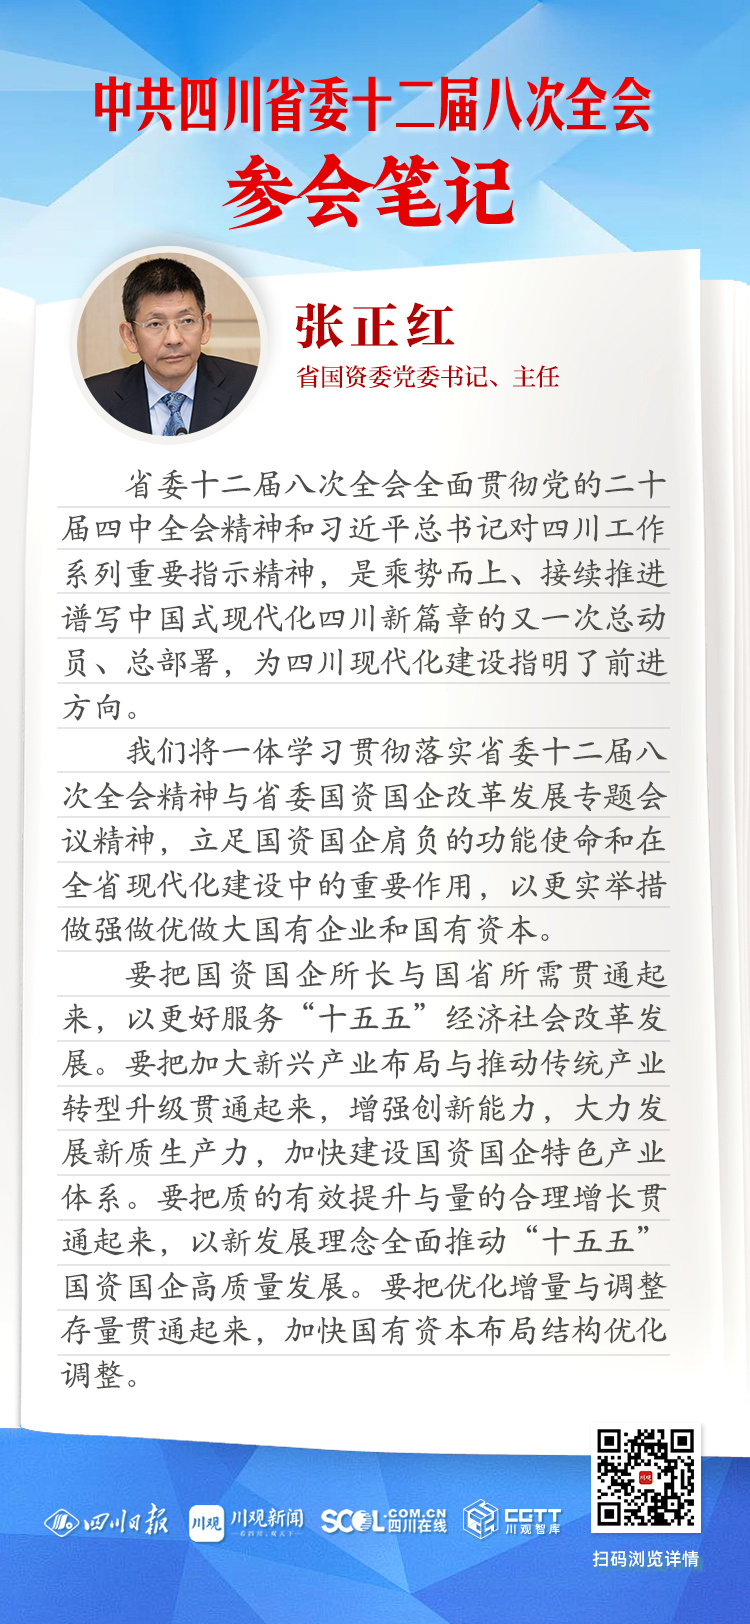 中共四川省委十二届八次全会
参会笔记
张正红
省国资委党委书记、主任
省委十二届八次全会全面贯彻党的二十
届四中全会精神和习近平总书记对四川工作
系列重要指示精神，是乘势而上、接续推进
谱写中国式现代化四川新篇章的又一次总动
员、总部署，为四川现代化建设指明了前进
方向。
我们将一体学习贯彻落实省委十二届八
次全会精神与省委国资国企改革发展专题会
议精神，立足国资国企肩负的功能使命和在
全省现代化建设中的重要作用，以更实举措
做强做优做大国有企业和国有资本。
要把国资国企所长与国省所需贯通起
来，以更好服务“十五五”经济社会改革发
展。要把加大新兴产业布局与推动传统产业
转型升级贯通起来，增强创新能力，大力发
展新质生产力，加快建设国资国企特色产业
体系。要把质的有效提升与量的合理增长贯
通起来，以新发展理念全面推动“十五五”
国资国企高质量发展。要把优化增量与调整
存量贯通起来，加快国有资本布局结构优化
调整。
四川日报
川观 川观新闻
SCOL.COM.CN
四川在线
CGTT
川观智库
川观
扫码浏览详情